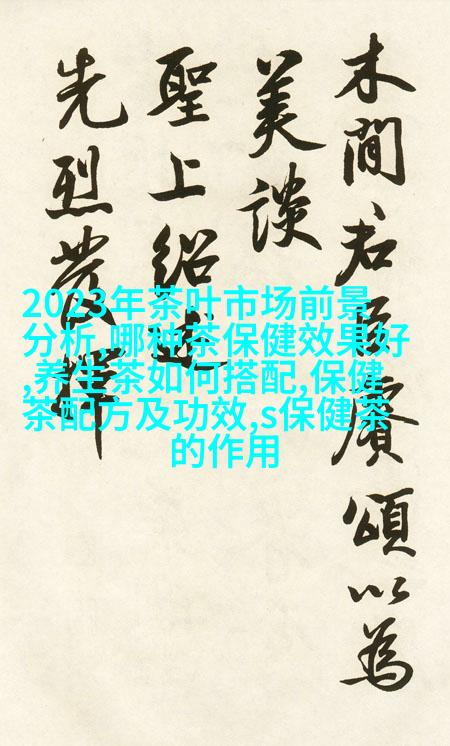 木間君臣賡頌以為
美談
聖上紹述
先烈
2023年茶叶市场前景
分析,哪种茶保健效果好
,养生茶如何搭配,保健
茶配方及功效,s保健茶
的作用